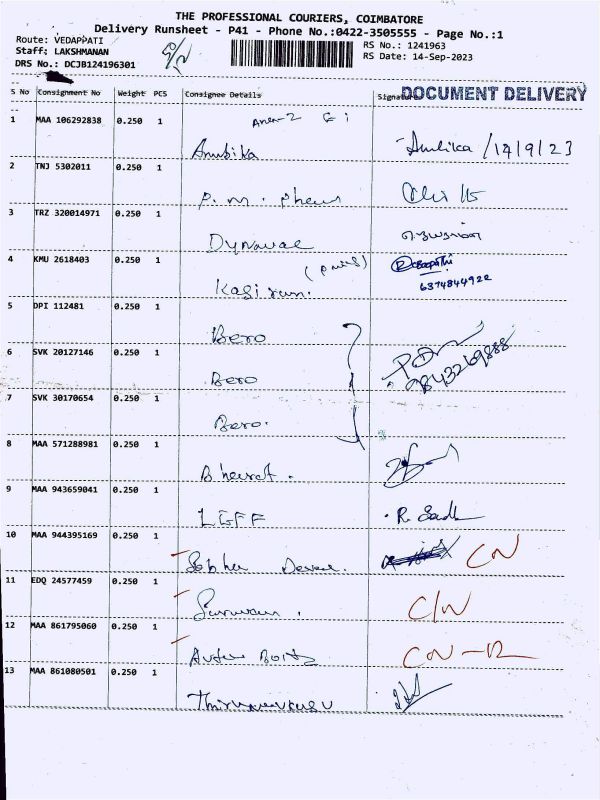 THE PROFESSIONAL COURIERS, COIMBATORE
Delivery Runsheet - P41 - Phone No.:0422-3505555 - Page No.:1
Route: VEDAPPATI
RS No.: 1241963
Staff: LAKSHMANAN
RS Date: 14-Sep-2023
DRS No.: DCJB124196301
S No Consignment No Weight PCS Consignee Details Signature
DOCUMENT DELIVERY
1 MAA 106292838 0.250 1
Ambika Ambika /14/9/23
2 TNJ 5302011 0.250 1
P. m.
3 TRZ 320014971 0.250 1
4 KMU 2618403 0.250 1
6374844922
5 DPI 112481 0.250 1
Bero
6 SVK 20127146 0.250 1
Bero 9843269888
7 SVK 30170654 0.250 1
Bero.
8 MAA 571288981 0.250 1
Bharat.
9 MAA 943659041 0.250 1
LGFF R.
10 MAA 944395169 0.250 1
CN
11 EDQ 24577459 0.250 1
C/N
12 MAA 861795060 0.250 1
CN-R
13 MAA 861080501 0.250 1